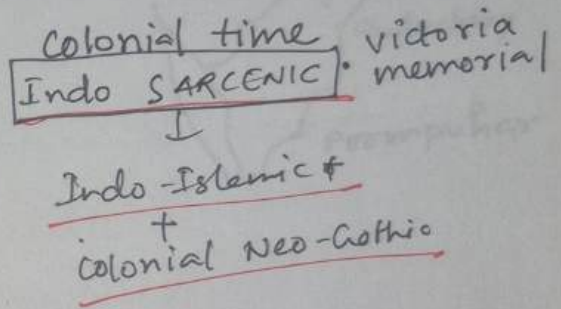 colonial time
Indo SARCENIC • victoria memorial
↓
Indo-Islamic +
+
colonial Neo-Gothic